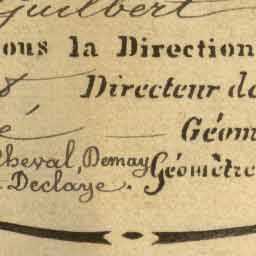 Guilbert
ous la Direction
Directeur de
Géom
Cheval, Demay Géomètre
Declaye.